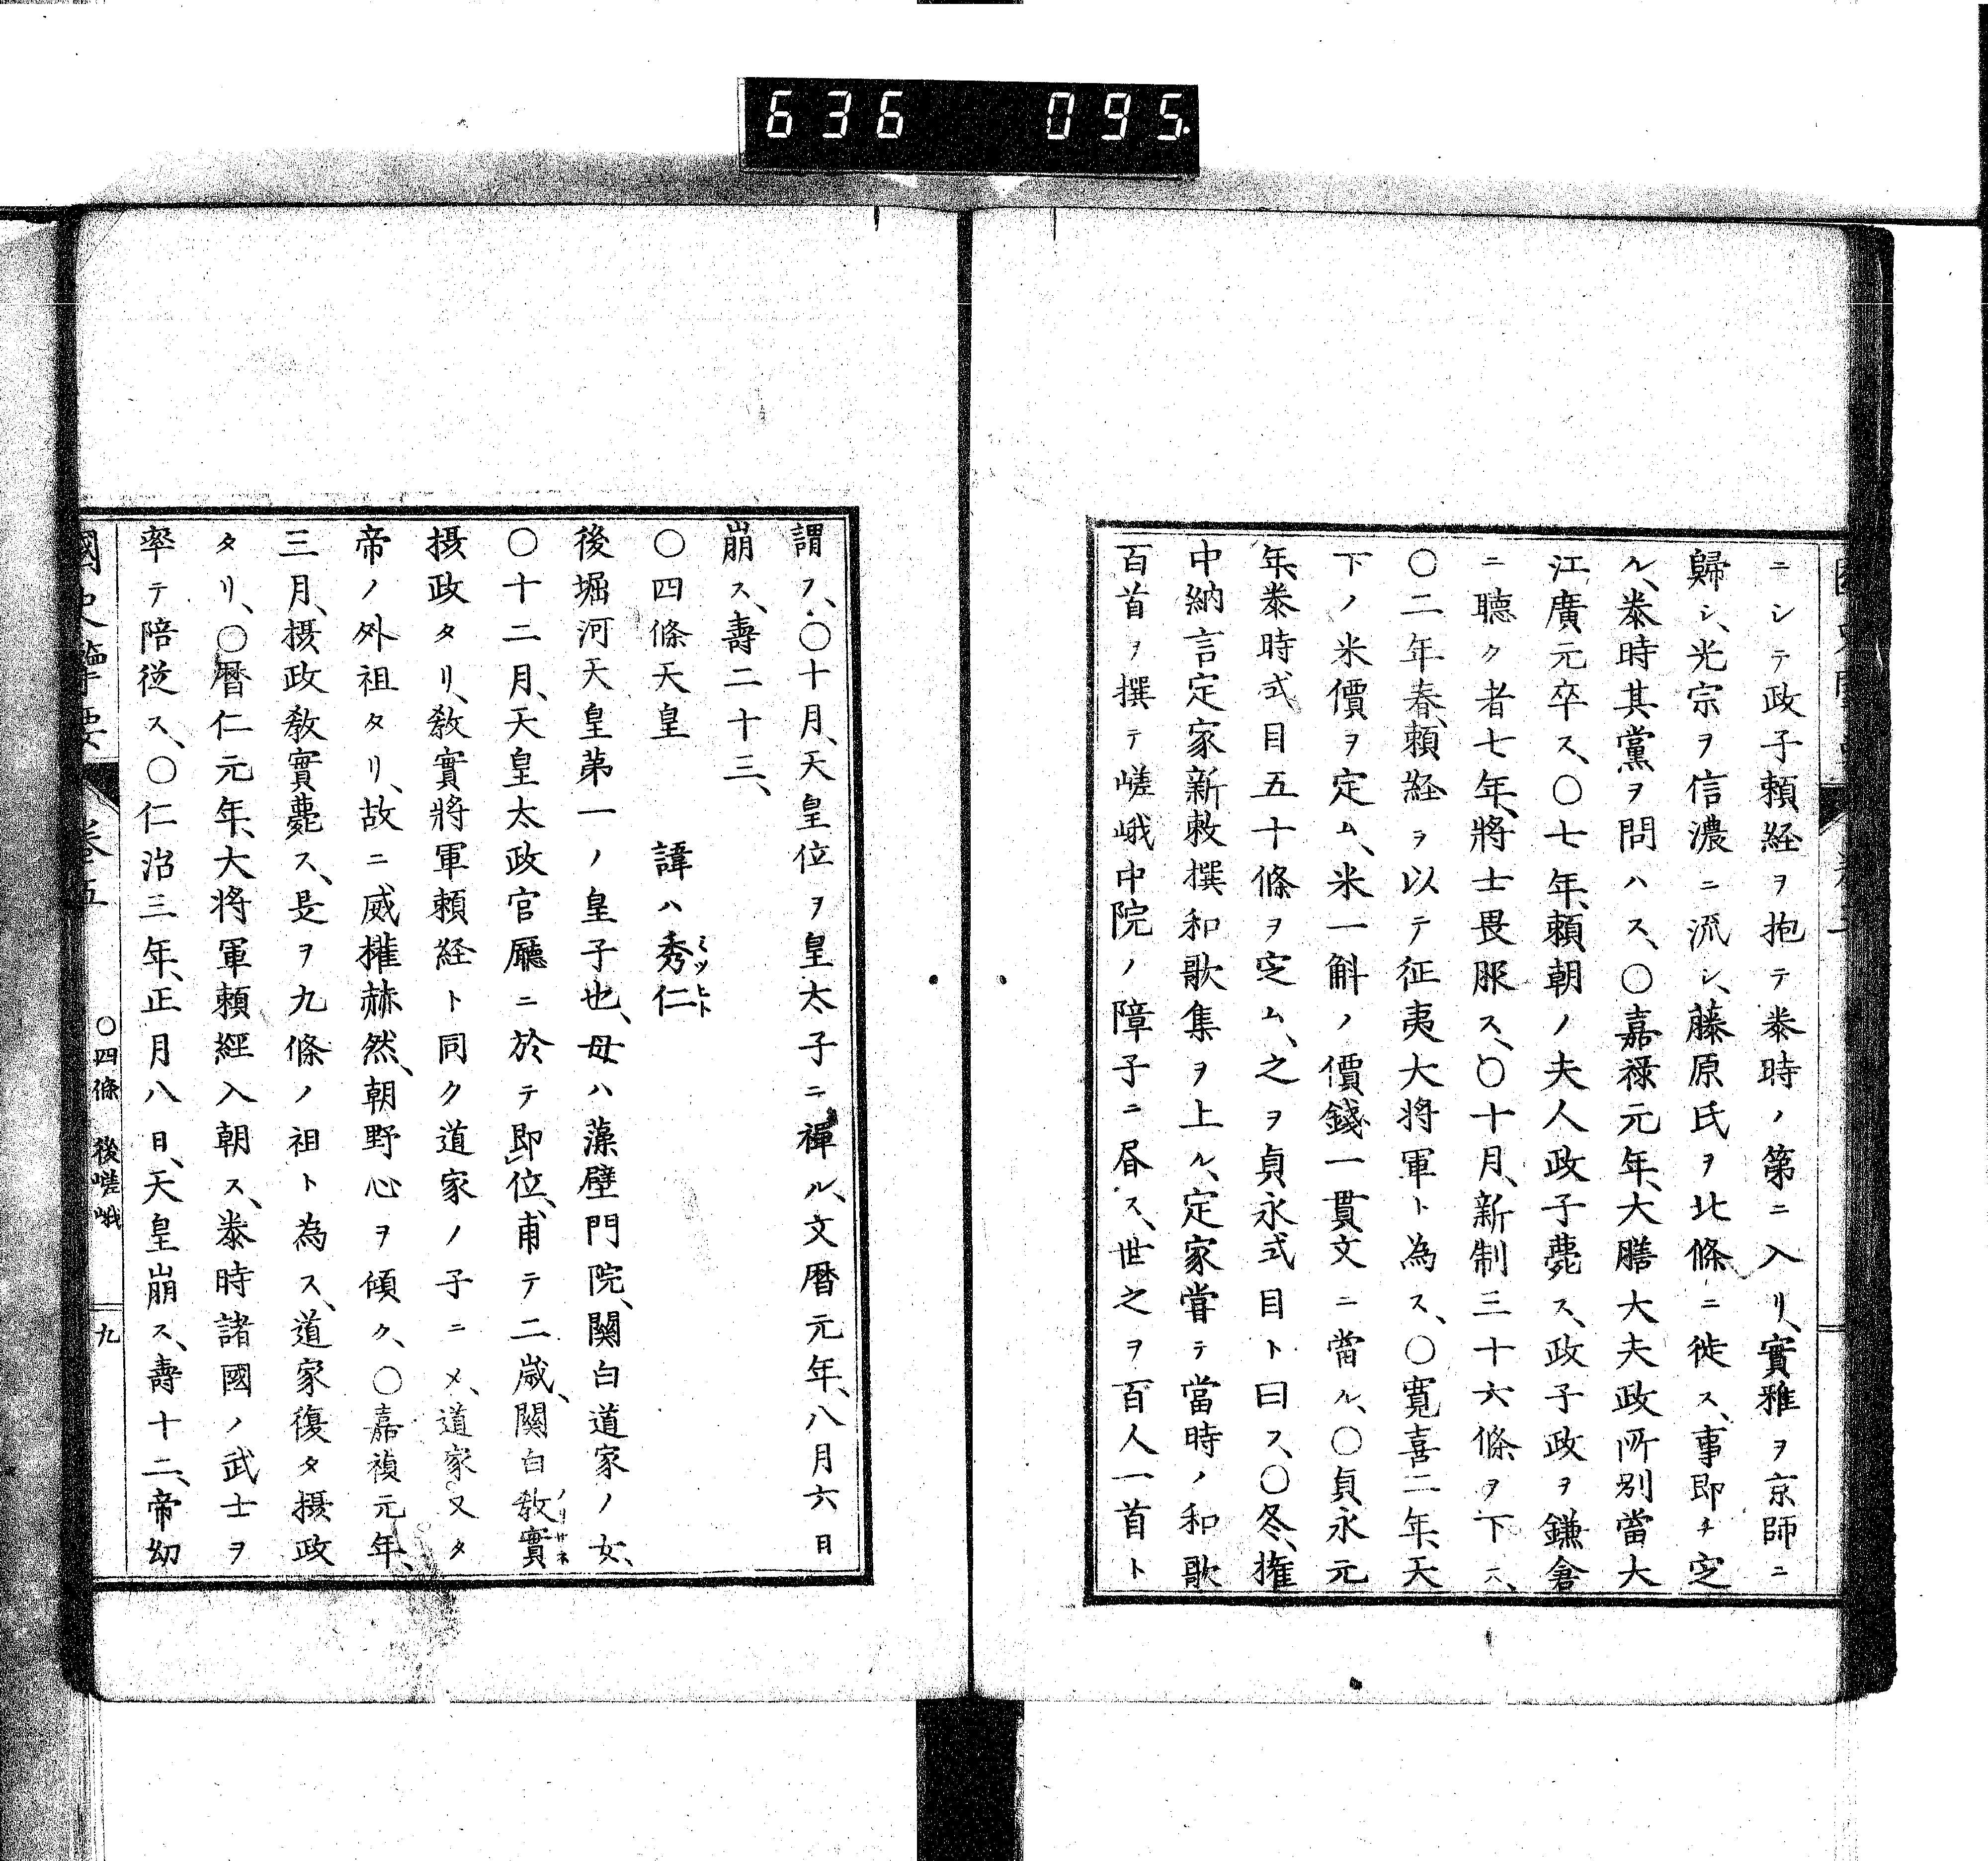 636 095
ニシテ政子頼経ヲ抱テ泰時ノ第ニ入リ、實雅ヲ京師ニ
歸シ、光宗ヲ信濃ニ流シ、藤原氏ヲ北條ニ徙ス、事即チ定
ル、泰時其黨ヲ問ハス、〇嘉禄元年、大膳大夫政所別當大
江廣元卒ス、〇七年、頼朝ノ夫人政子薨ス、政子政ヲ鎌倉
ニ聴ク者七年、將士畏服ス、〇十月、新制三十六條ヲ下ス、
〇二年春、頼経ヲ以テ征夷大将軍ト為ス、〇寛喜二年、天
下ノ米價ヲ定ム、米一斛ノ價錢一貫文ニ當ル、〇貞永元
年、泰時式目五十條ヲ定ム、之ヲ貞永式目ト曰フ、〇冬、権
中納言定家新敕撰和歌集ヲ上ル、定家甞テ當時ノ和歌
百首ヲ撰テ嵯峨中院ノ障子ニ昏ス、世之ヲ百人一首ト
謂フ、〇十月、天皇位ヲ皇太子ニ禅ル、文暦元年、八月六日
崩ス、壽二十三、
〇四條天皇 諱ハ秀仁ミツヒト
後堀河天皇第一ノ皇子也、母ハ藻壁門院、關白道家ノ女、
〇十二月、天皇太政官廰ニ於テ即位、甫テ二歳、關白敎實ノリサネ
摂政タリ、敎實將軍頼経ト同ク道家ノ子ニメ、道家又タ
帝ノ外祖タリ、故ニ威権赫然、朝野心ヲ傾ク、〇嘉禎元年、
三月、摂政敎實薨ス、是ヲ九條ノ祖ト為ス、道家復タ摂政
タリ、〇暦仁元年、大将軍頼經入朝ス、泰時諸國ノ武士ヲ
率テ陪従ス、〇仁治三年、正月八日、天皇崩ス、壽十二、帝幼
國史擥要 巻五 〇四條 後嵯峨 九